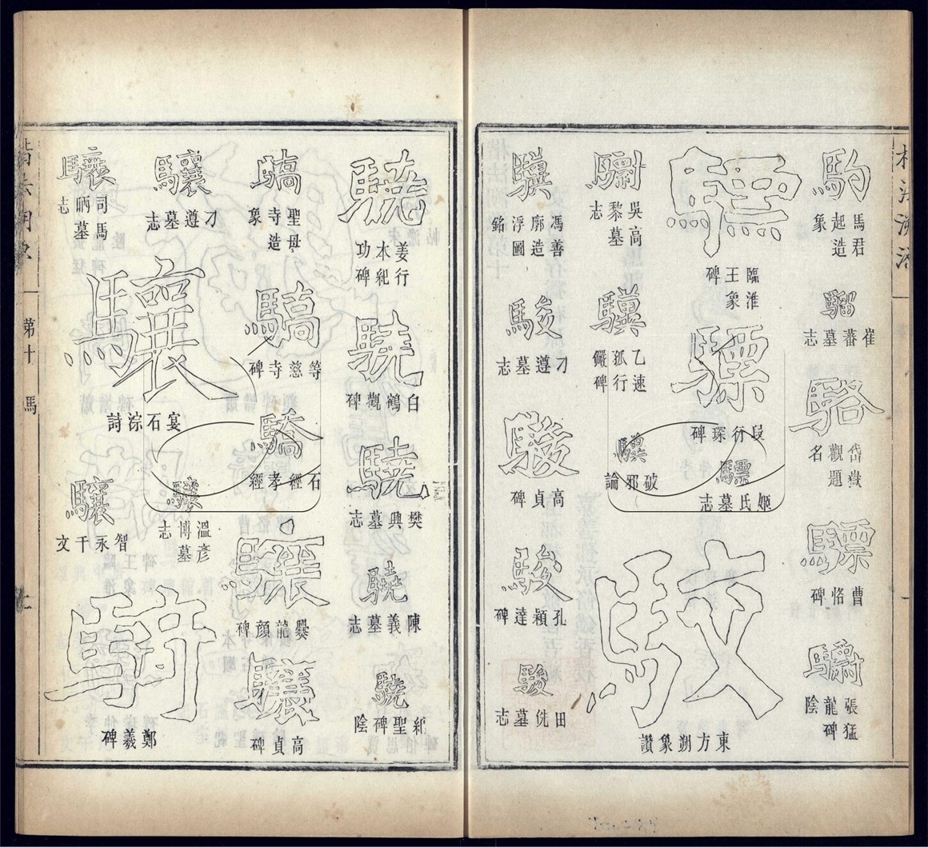 駒
馬君起造象
騶
崔蕃墓志
駱
岱嶽觀題名
驃
曹恪碑
張猛龍碑陰
驃
臨淮王象碑
驃
段行琛碑
驃
姬氏墓志
駮
東方朔象讚
吳高黎墓志
驥
乙速孤行儼碑
驥
破邪論
驥
馮善廓造浮圖銘
駿
刁遵墓志
駿
高貞碑
駿
孔穎達碑
駿
田侁墓志
驍
姜行本紀功碑
驍
白鶴觀碑
驍
樊興墓志
驍
陳義墓志
驍
紀聖碑陰
驕
聖母寺造象
驕
等慈寺碑
驕
石經孝經
驤
爨龍顏碑
驤
高貞碑
驤
刁遵墓志
驤
宴石淙詩
驤
溫彥博墓志
騎
鄭羲碑
驤
司馬昞墓志
驤
智永千文
第十 馬